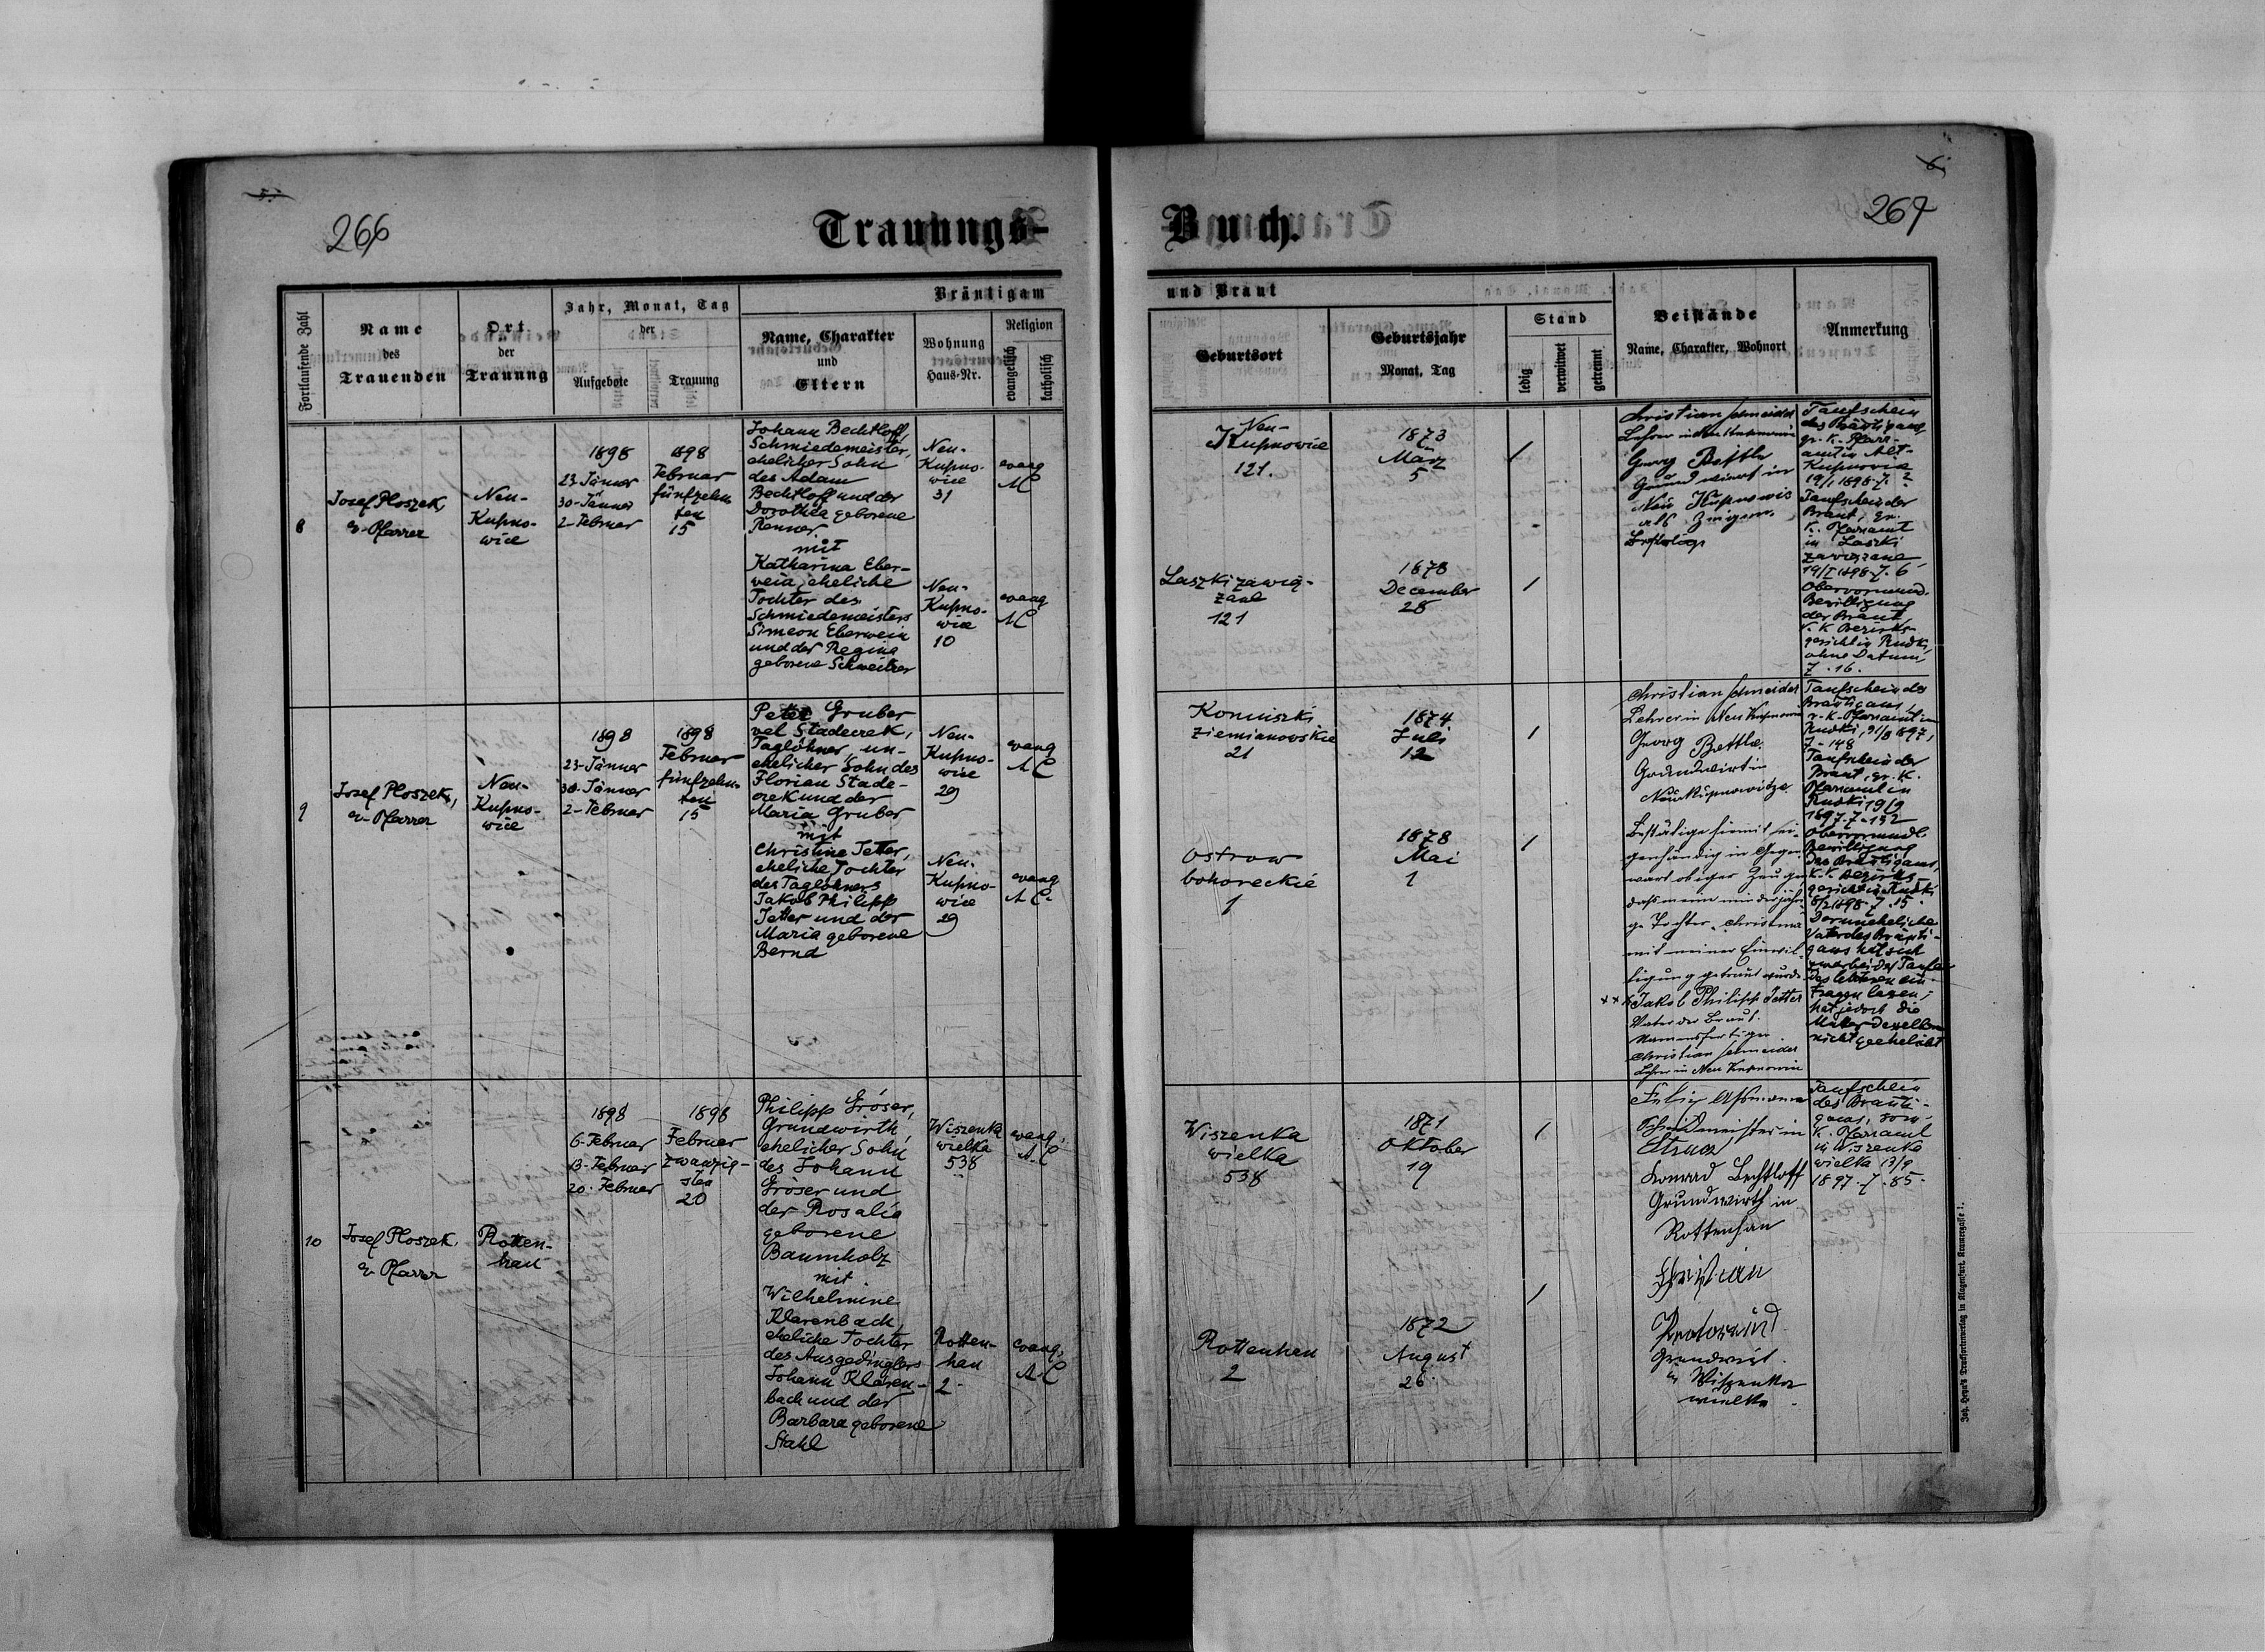 266
Trauungs-
Jahr, Monat, Tag
der
Bräutigam
Fortlaufende Zahl
Name
des
Trauenden
Ort
der
Trauung
Aufgebote
Trauung
Name, Charakter
und
Eltern
Wohnung
Haus-Nr.
Religion
evangelisch
katholisch
8
Josef Ploszek,
ev. Pfarrer
Neu-
Kupno-
wice
1898
23-Jänner
30-Jänner
2-Februar
1898
Februar
fünfzehn
ten
15
Johann Bechtloff,
Schmiedemeister,
ehelicher Sohn
des Adam
Bechtloff und der
Dorothea geborene
Renner
mit
Katharina Eber-
wein, eheliche
Tochter des
Schmiedemeisters
Simeon Eberwein
und der Regina
geborene Schweitzer
Neu-
Kupno-
wice
31
evang
AC
Neu-
Kupno-
wice
10
evang
AC
9
Josef Ploszek,
ev. Pfarrer
Neu-
Kupno-
wice
1898
23-Jänner
30-Jänner
2-Februar
1898
Februar
fünfzehn-
ten
15
Peter Gruber
vel Staderek,
Taglöhner, un-
ehelicher Sohn des
Florian Stade-
rek und der
Maria Gruber
mit
Christine Jetter,
eheliche Tochter
des Taglöhners
Jakob Philipp
Jetter und der
Maria geborene
Bernd
Neu-
Kupno-
wice
29
evang
AC
Neu-
Kupno-
wice
29
evang
AC
10
Josef Ploszek,
ev. Pfarrer
Rotten-
han
1898
6-Februar
13-Februar
20-Februar
1898
Februar
zwanzig-
sten
20
Philipp Gröser,
Grundwirth,
ehelicher Sohn
des Johann
Gröser und
der Rosalia
geborene
Baumholz
mit
Wilhelmine
Klarenbach,
eheliche Tochter
des Ausgedinglers
Johann Klaren-
bach und der
Barbara geborene
Stahl
Wiszenka
wielka
538
evang.
AC
Rotten-
han
2
evang.
AC
267
Buch.
und Braut
Geburtsort
Geburtsjahr
Monat, Tag
Stand
ledig
verwitwet
getrennt
Beistände
Name, Charakter, Wohnort
Anmerkung
Neu-
Kupnowice
121.
1873
März
5
Laszki zawią-
zane
121
1878
December
28
Christian Schneider
Lehrer in Neu Kupnowice
Georg Bettle
Grundwirt in
Neu Kupnowice
als Zeugen
Taufschein
des Bräutigams,
gr. k. Pfarr-
amt in Alt-
Kupnowice
19/I 1898
Taufschein der
Braut, gr.
k. Pfarramt
in Laszki
zawiązane
19/I 1898 Z. 6
Obervormund.
Bewilligung
der Braut,
k. k. Bezirks-
gericht in Rudki,
ohne Datum,
Z. 16.
Koniuszki
ziemianowskie
21
1874
Juli
12
Ostrow
bohoreckie
1
1878
Mai
1
Christian Schneider
Lehrer in Neu Kupnowice
Georg Bettle
Grundwirt in
Neu Kupnowitze
Bestätige hiermit ei-
genhändig in Gegen-
wart obiger Zeugen
dass meine minderjähri-
ge Tochter Christina
mit meiner Einwil-
ligung getraut wurde
xxx Jakob Philipp Jetter
Vater der Braut.
Namensfertiger
Christian Schneider
Lehrer in Neu Kupnowice
Taufschein des
Bräutigams,
r. k. Pfarramt in
Rudki, 31/8 1897,
Z-148
Taufschein der
Braut, gr. k.
Pfarramt in
Rudki 19/9
1897. Z. 132
Obervormundl.
Bewilligung
des Bräutigams,
k. k. Bezirks-
gericht in Rudki
8/2 1898. Z. 15.
Der uneheliche
Vater des Bräuti-
gams hat sich
zwar bei der Taufe
des letzteren ein-
tragen lassen,
hat jedoch die
Mutter desselben
nicht geehelicht
Wiszenka
wielka
538
1871
Oktober
19
Rottenhan
2
1872
August
26.
Assmann
in
Konrad Bechtloff
Grundwirth in
Rottenhan
Christian
Grundwirt
in Wiszenka
wielka
Taufschein
des Bräuti-
gams, röm.
k. Pfarramt
in Wiszenka
wielka 13/9
1897. Z. 85.